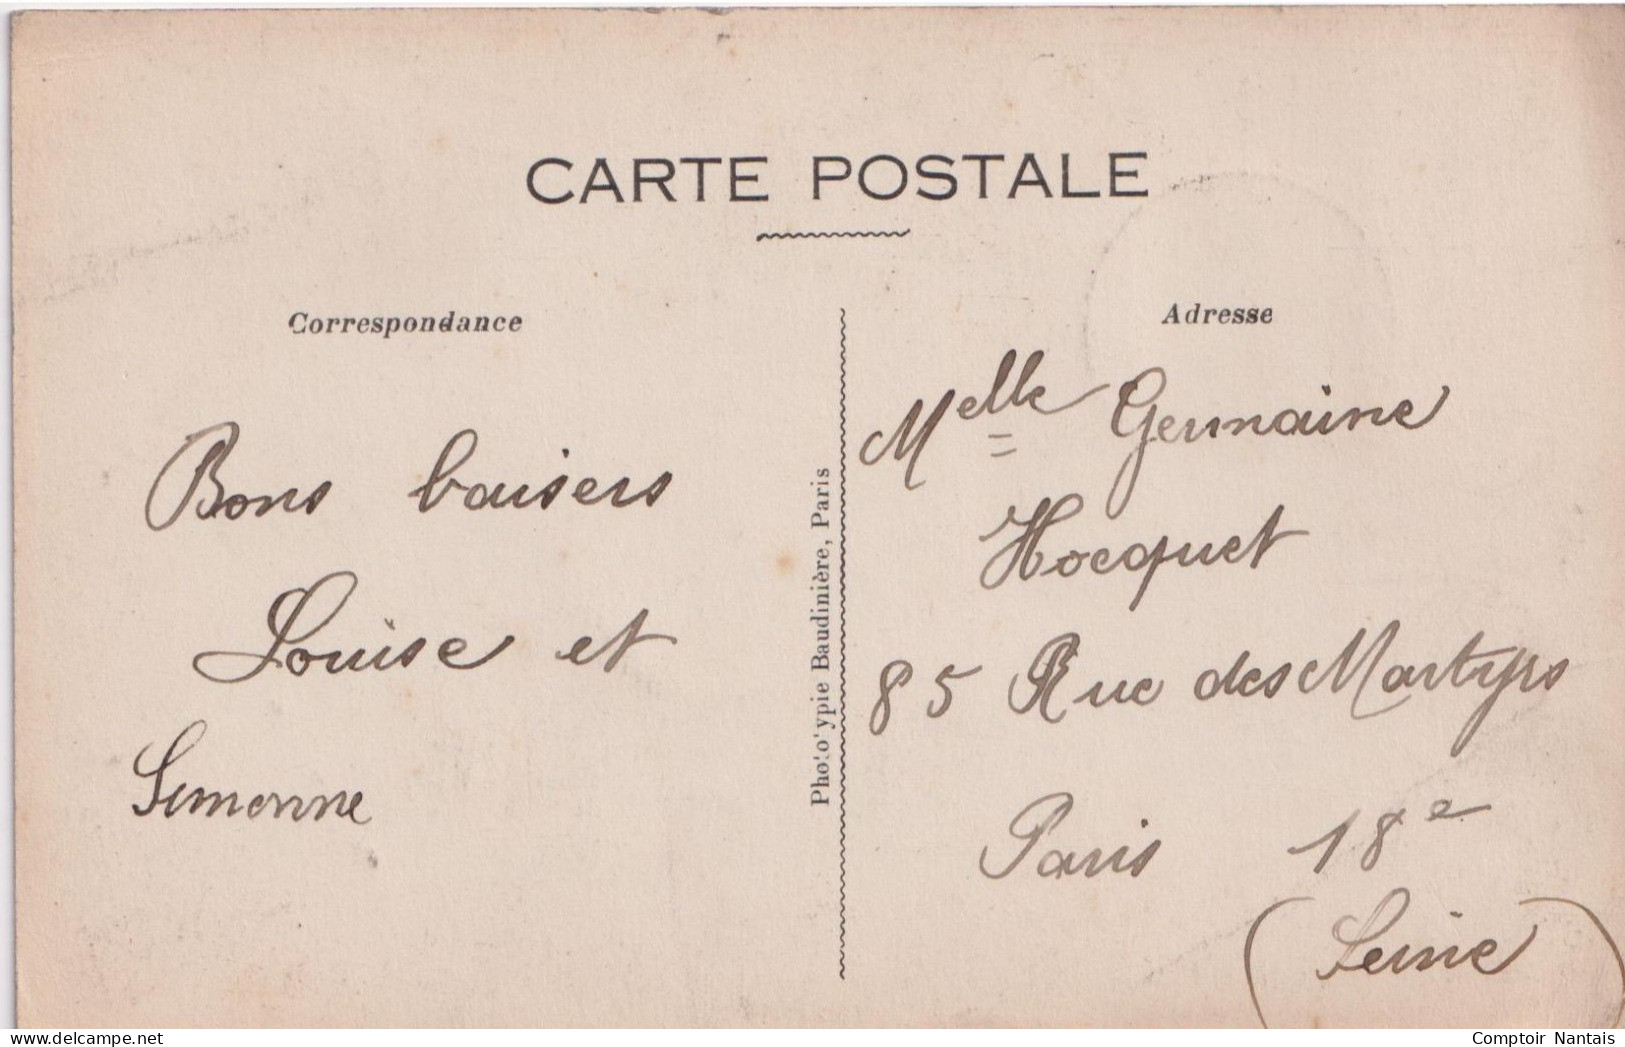 CARTE POSTALE
Correspondance
Bons baisers
Louise et
Simonne
Photo'ypie Baudinière, Paris
Adresse
Melle Germaine
Hocquet
85 Rue des Martyrs
Paris 18e
(Seine)
Comptoir Nantais